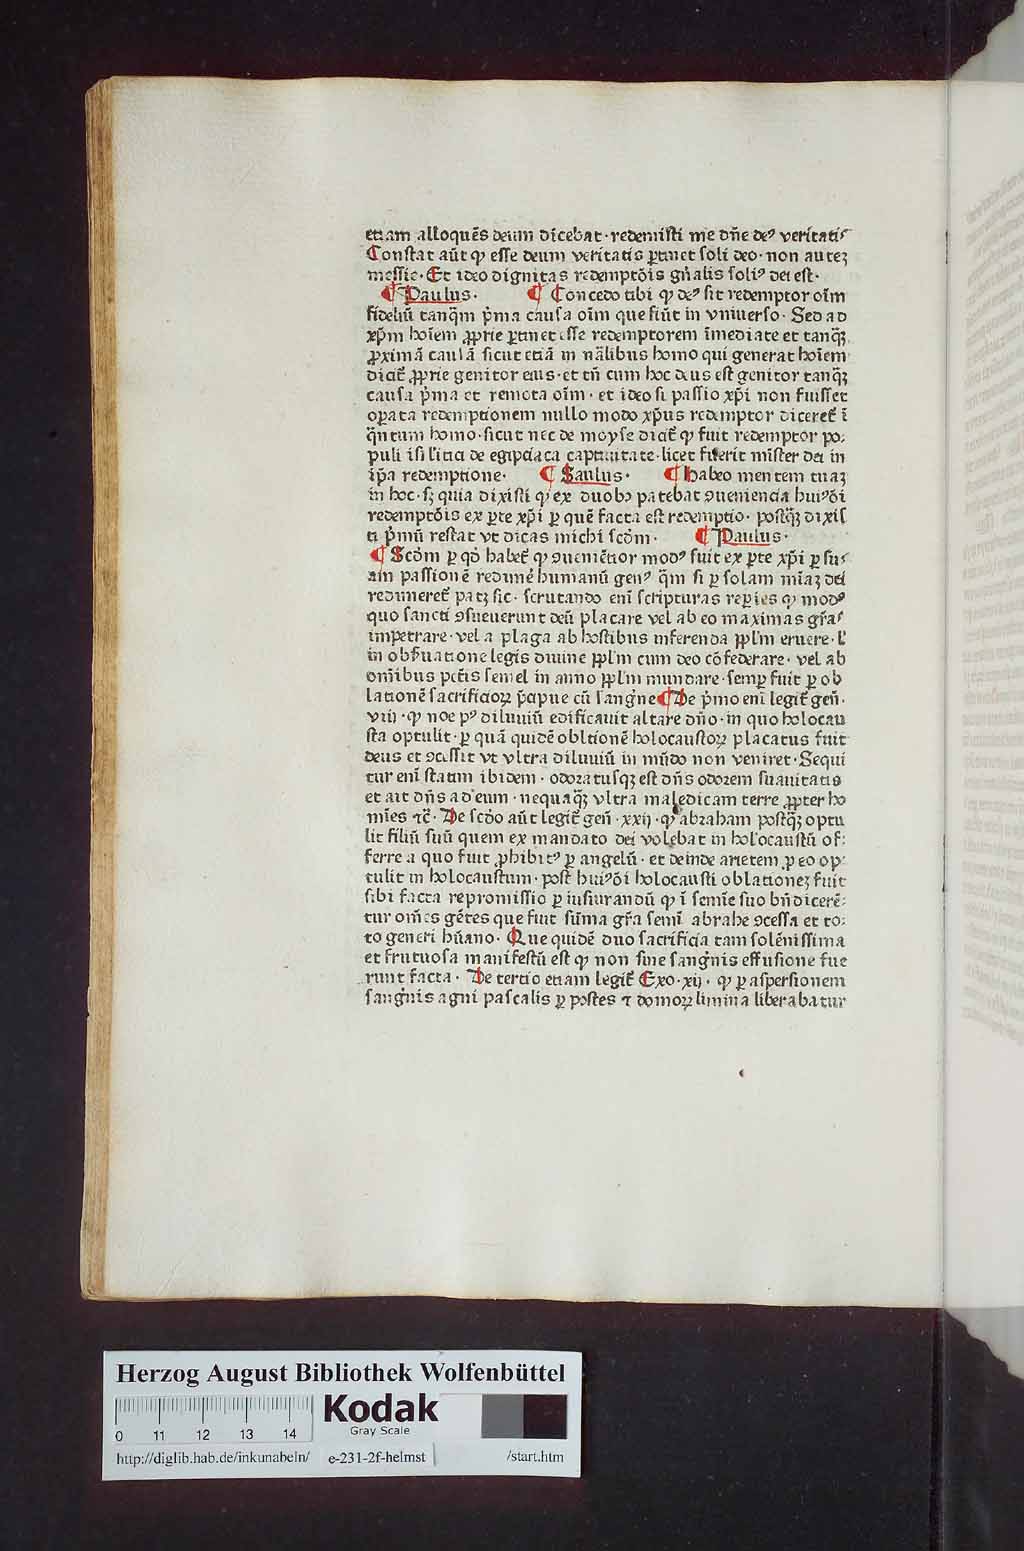 etiam alloquēs deum dicebat · redemisti me dn̄e deꝰ veritatis
Constat aūt ꝙ esse deum veritatis ꝑtinet soli deo · non autez
messie · Et ideo dignitas redemptōis gn̄alis soliꝰ dei est ·
¶ Paulus · ¶ Concedo tibi ꝙ deꝰ sit redemptor oīm
fideliū tanq̄m p̄ma causa oīm que fiūt in vniuerso · Sed ad
xp̄m hoīem ꝓprie ꝑtinet esse redemptorem īmediate et tanq̄ꝫ
ꝓximā causā sicut etiā in nālibus homo qui generat hoīem
dicit̄ ꝓprie genitor eius · et tn̄ cum hoc deus est genitor tanq̄ꝫ
causa p̄ma et remota oīm · et ideo si passio xp̄i non fuisset
oꝑata redemptionem nullo modo xp̄us redemptor diceret̄ ī
q̄ntum homo · sicut nec de moyse dicit̄ ꝙ fuit redemptor po⸗
puli isrl̓itici de egipciaca captiuitate · licet fuerit mister dei in
ip̄a redemptione · ¶ Saulus · ¶ Habeo mentem tuaꝫ
in hoc · sꝫ quia dixisti ꝙ ex duobꝰ patebat ꝯueniencia huiꝰōi
redemptōis ex ꝑte xp̄i ꝑ quē facta est redemptio · postq̄ꝫ dixis
ti p̄mū restat vt dicas michi scd̄m · ¶ Paulus ·
¶ Scd̄m ꝑ qd̄ habet̄ ꝙ ꝯueniētior modꝰ fuit ex ꝑte xp̄i ꝑ su⸗
am passionē redimē humanū genꝰ q̄m si ꝑ solam mīaꝫ dei
redimeret̄ patꝫ sic · scrutando enī scripturas reꝑies ꝙ modꝰ
quo sancti ꝯsueuerunt deū placare vel ab eo maximas gr̄as
impetrare · vel a plaga ab hostibus inferenda ppl̄m eruere · l̓
in obẜuatione legis diuine ppl̄m cum deo cōfederare · vel ab
omībus pctīs semel in anno ppl̄m mundare · semꝑ fuit ꝑ ob
lationē sacrificioꝝ p̄cipue cū sangīne ¶ De p̄mo enī legit̄ gen̄ ·
viij · ꝙ noe pꝰ diluuiū edificauit altare dn̄o · in quo holocau
sta optulit · ꝑ quā quidē obltionē holocaustoꝝ placatus fuit
deus et ꝯcessit vt vltra diluuiū in mūdo non veniret · Sequi
tur enī statim ibidem · odoratusqꝫ est dn̄s odorem suauitatis
et ait dn̄s ad eum · nequaq̄ꝫ vltra maledicam terre ꝓpter ho
mīes ⁊c̄ · De scd̄o aūt legit̄ gen̄ · xxij · ꝙ abraham postq̄ꝫ optu
lit filiū suū quem ex mandato dei volebat in holocaustū of⸗
ferre a quo fuit ꝓhibitꝰ ꝑ angelū · et deinde arietem ꝓ eo op⸗
tulit in holocaustum · post huiꝰōi holocausti oblationeꝫ fuit
sibi facta repromissio ꝑ iusiurandū ꝙ ī semīe suo bn̄dicerē⸗
tur om̄es gētes que fuit sūma gr̄a semī abrahe ꝯcessa et to⸗
to generi hūano · Que quidē duo sacrificia tam solēnissima
et frutuosa manifestū est ꝙ non sine sangīnis effusione fue
runt facta · De tertio etiam legit̄ Exo · xij · ꝙ ꝑ aspersionem
sangīnis agni pascalis ꝑ postes ⁊ domoꝝ limina liberabatur
Herzog August Bibliothek Wolfenbüttel
0 11 12 13 14
Kodak
Gray Scale
http://diglib.hab.de/inkunabeln/ e-231-2f-helmst /start.htm